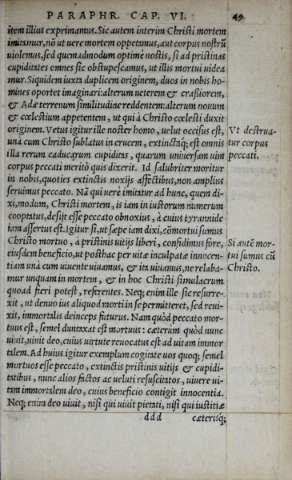 PARAPHR. CAP. VI. 49
item illius exprimamus. Sic autem interim Christi mortem
imitamur, nō ut uere mortem oppetamus, aut corpus nostrū
uiolemus, sed quemadmodum optime nostis, si ad pristinas
cupiditates omnes sic obstupescamus, ut illis mortui uidea
mur. Siquidem iuxta duplicem originem, duos in nobis ho-
mines oportet imaginari: alterum ueterem & crassiorem,
& Adæ terrenum similitudine reddentem: alterum nouum
& cœlestium appetentem, ut qui à Christo cœlesti duxit
originem. Vetus igitur ille noster homo, uelut occisus est, Vt destrua-
una cum Christo sublatus in crucem, extinctaq́; est omnis tur corpus
illa rerum caducarum cupiditas, quarum uniuersam uim peccati.
corpus peccati meritò quis dixerit. Id salubriter moritur
in nobis, quoties extinctis noxijs affectibus, non amplius
seruimus peccato. Nā qui uere imitatur ad hunc, quem di-
xi, modum, Christi mortem, is iam in iustorum numerum
cooptatus, desijt esse peccato obnoxius, à cuius tyrannide
iam assertus est. Igitur si, ut sæpe iam dixi, cōmortui sumus
Christo mortuo, à pristinis uitijs liberi, confidimus fore, Si autē mor-
eiusdem beneficio, ut posthac per uitæ inculpatæ innocen- tui sumus cū
tiam una cum uiuente uiuamus, & ita uiuamus, ne relaba- Christo.
mur unquam in mortem, & in hoc Christi simulacrum
quoad fieri potest, referentes. Neq; enim ille sic resurre-
xit, ut denuo ius aliquod morti in se permitteret, sed reui-
xit, immortalis deinceps futurus. Nam quòd peccato mor-
tuus est, semel duntaxat est mortuus: cæterum quòd nunc
uiuit, uiuit deo, cuius uirtute reuocatus est ad uitam immor
talem. Ad huius igitur exemplum cogitate uos quoq; semel
mortuos esse peccato, extinctis pristinis uitijs & cupidi-
tatibus, nunc alios factos ac ueluti resuscitatos, uiuere ui-
tam immortalem deo, cuius beneficio contigit innocentia.
Neq; enim deo uiuit, nisi qui uiuit pietati, nisi qui iustitiæ
ddd cæterisq́;